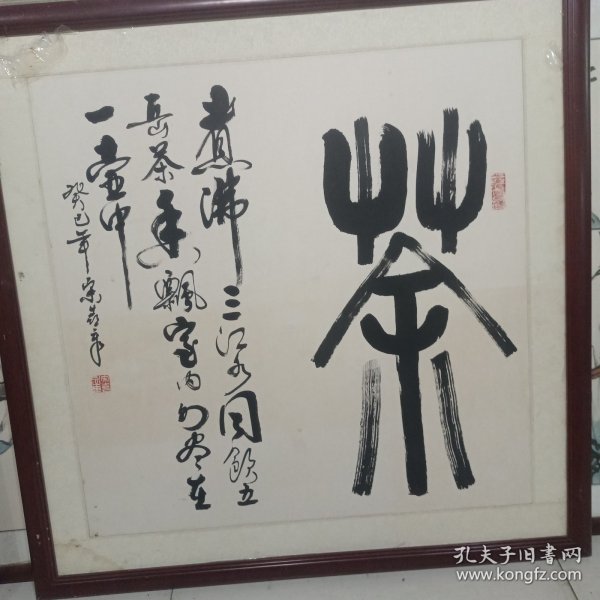 茶
煮沸三江水同飲五
岳茶香飄室内尽在
一壶中
癸巳年
孔夫子旧書网
www.kongfz.com